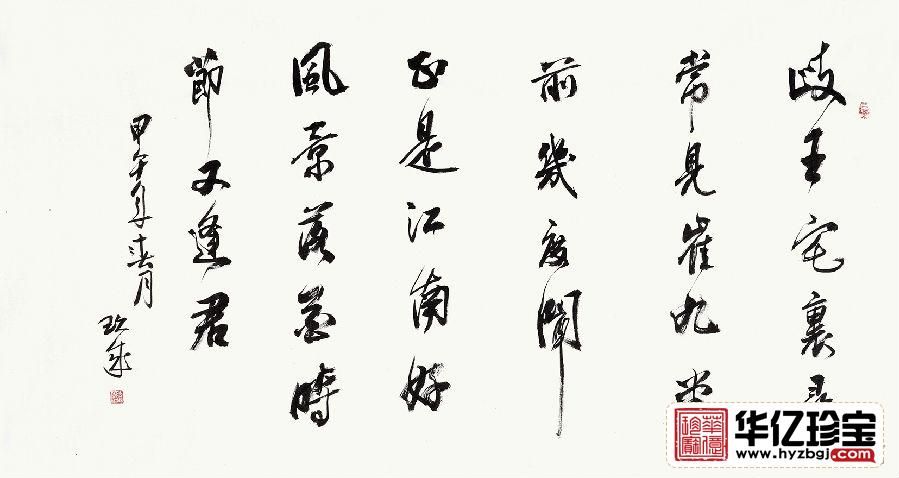 歧王宅裏尋
常見崔九堂
前幾度聞
正是江南好
風景落花時
節又逢君
甲午年春月
華億珍寶
华亿珍宝
www.hyzbgj.com